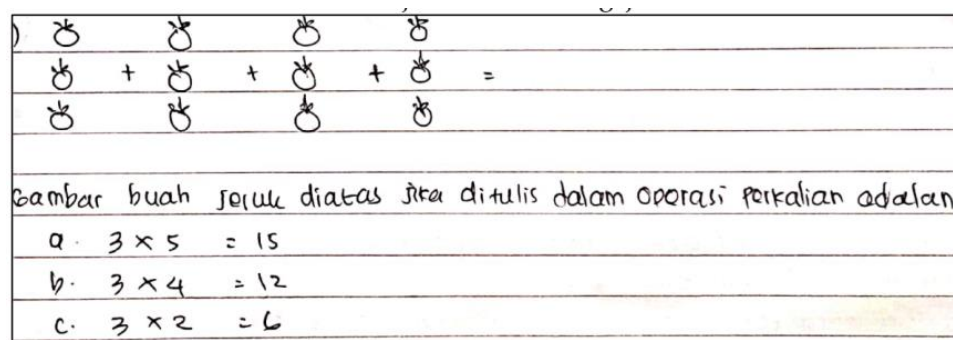 + + + =
Gambar buah jeruk diatas jika ditulis dalam operasi perkalian adalah
a. 3 × 5 = 15
b. 3 × 4 = 12
c. 3 × 2 = 6